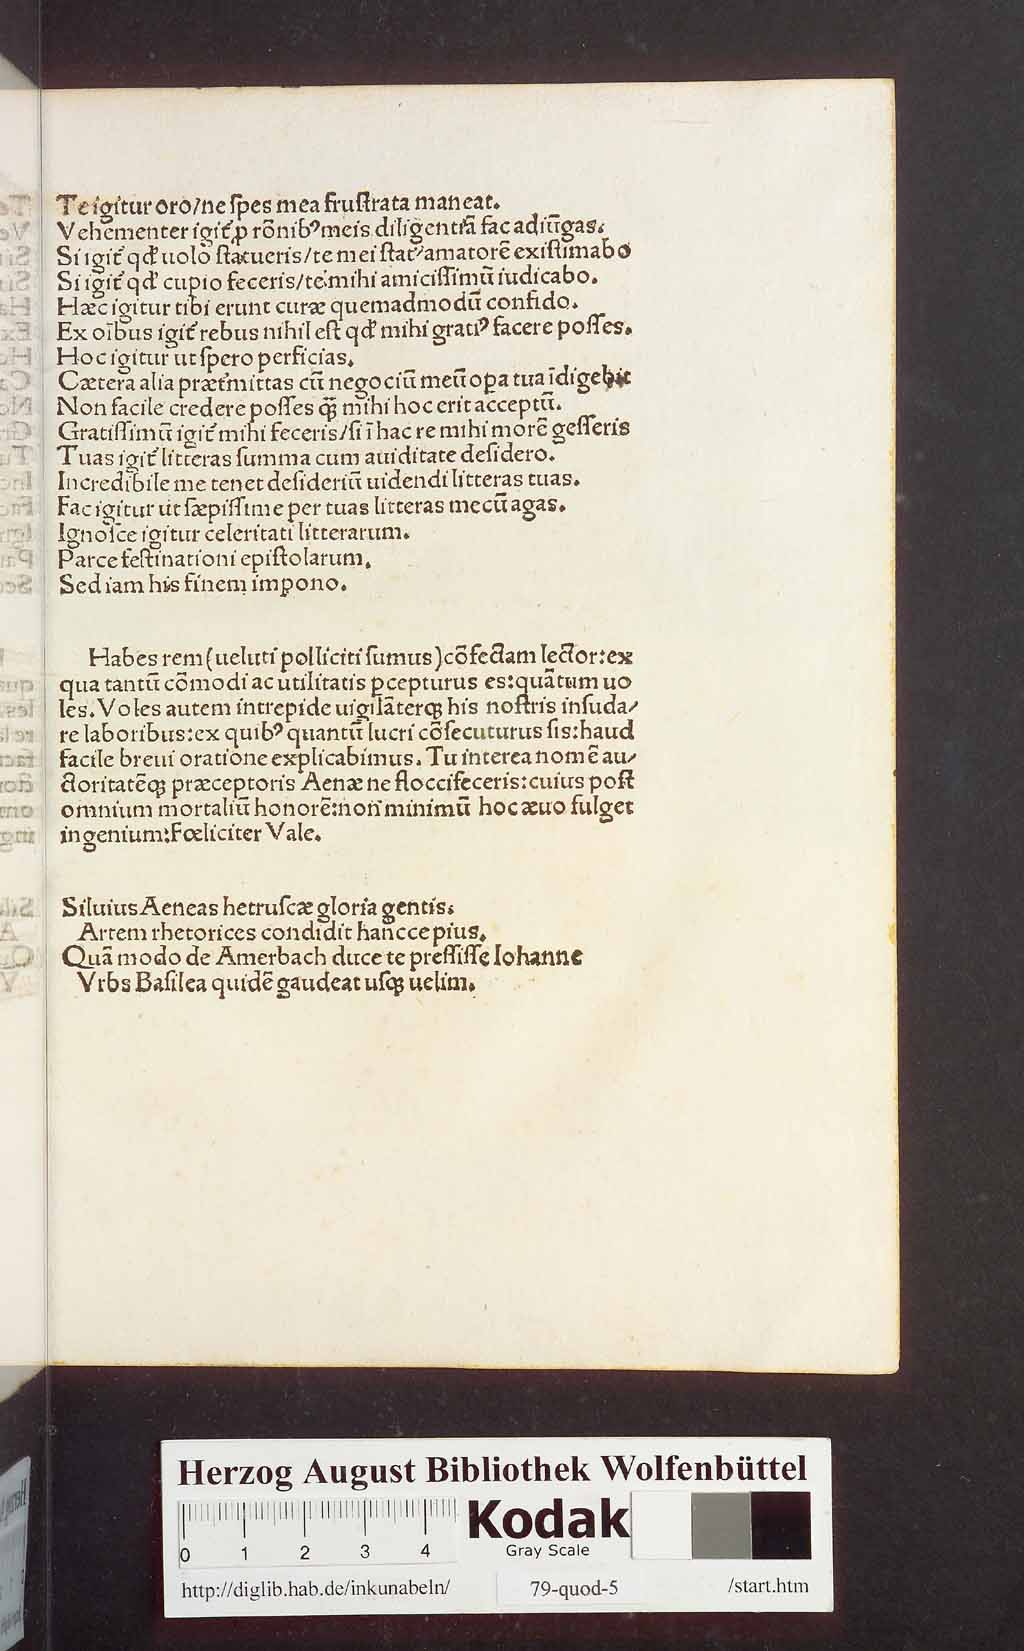 Te igitur oro/ne ſpes mea fruſtrata maneat.
Vehementer igit̃ ꝓ rõnibꝰ meis diligentiã fac adiũgas.
Si igit̃ qđ uolo ſtatueris/te mei ſtatꝰ amatorẽ exiſtimabo
Si igit̃ qđ cupio feceris/te mihi amiciſſimũ iudicabo.
Hæc igitur tibi erunt curæ quemadmodũ confido.
Ex oĩbus igit̃ rebus nihil eſt qđ mihi gratiꝰ facere poſſes.
Hoc igitur ut ſpero perficias.
Cætera alia præt̃mittas cũ negociũ meũ opa tua ĩdigebit
Non facile credere poſſes q̃ꝫ mihi hoc erit acceptũ.
Gratiſſimũ igit̃ mihi feceris/ſi ĩ hac re mihi morẽ geſſeris
Tuas igit̃ litteras ſumma cum auiditate deſidero.
Incredibile me tenet deſideriũ uidendi litteras tuas.
Fac igitur ut ſæpiſſime per tuas litteras mecũ agas.
Ignoſce igitur celeritati litterarum.
Parce feſtinationi epiſtolarum.
Sed iam his finem impono.
Habes rem (ueluti polliciti ſumus) cõfectam lector: ex
qua tantũ cõmodi ac utilitatis ꝑcepturus es: quãtum uo
les. Voles autem intrepide uigilãterqꝫ his noſtris inſuda/
re laboribus: ex quibꝰ quantũ lucri cõſecuturus ſis: haud
facile breui oratione explicabimus. Tu interea nomẽ au/
ctoritatẽqꝫ præceptoris Aenæ ne floccifeceris: cuius poſt
omnium mortaliũ honorẽ: non minimũ hoc æuo fulget
ingenium: Fœliciter Vale.
Siluius Aeneas hetruſcæ gloria gentis.
Artem rhetorices condidit hancce pius.
Quã modo de Amerbach duce te preſſiſſe Iohanne
Vrbs Baſilea quidẽ gaudeat uſqꝫ uelim.
Herzog August Bibliothek Wolfenbüttel
0 1 2 3 4
Kodak
Gray Scale
http://diglib.hab.de/inkunabeln/ 79-quod-5 /start.htm